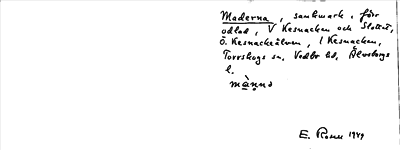 Maderna, sankmark, förr
odlad, V Kesnacken och Slottet,
Ö. Kesnackeälven, i Kesnacken,
Torrskogs sn, Vedbo hd, Älvsborgs
l.
E. Rosell 1949